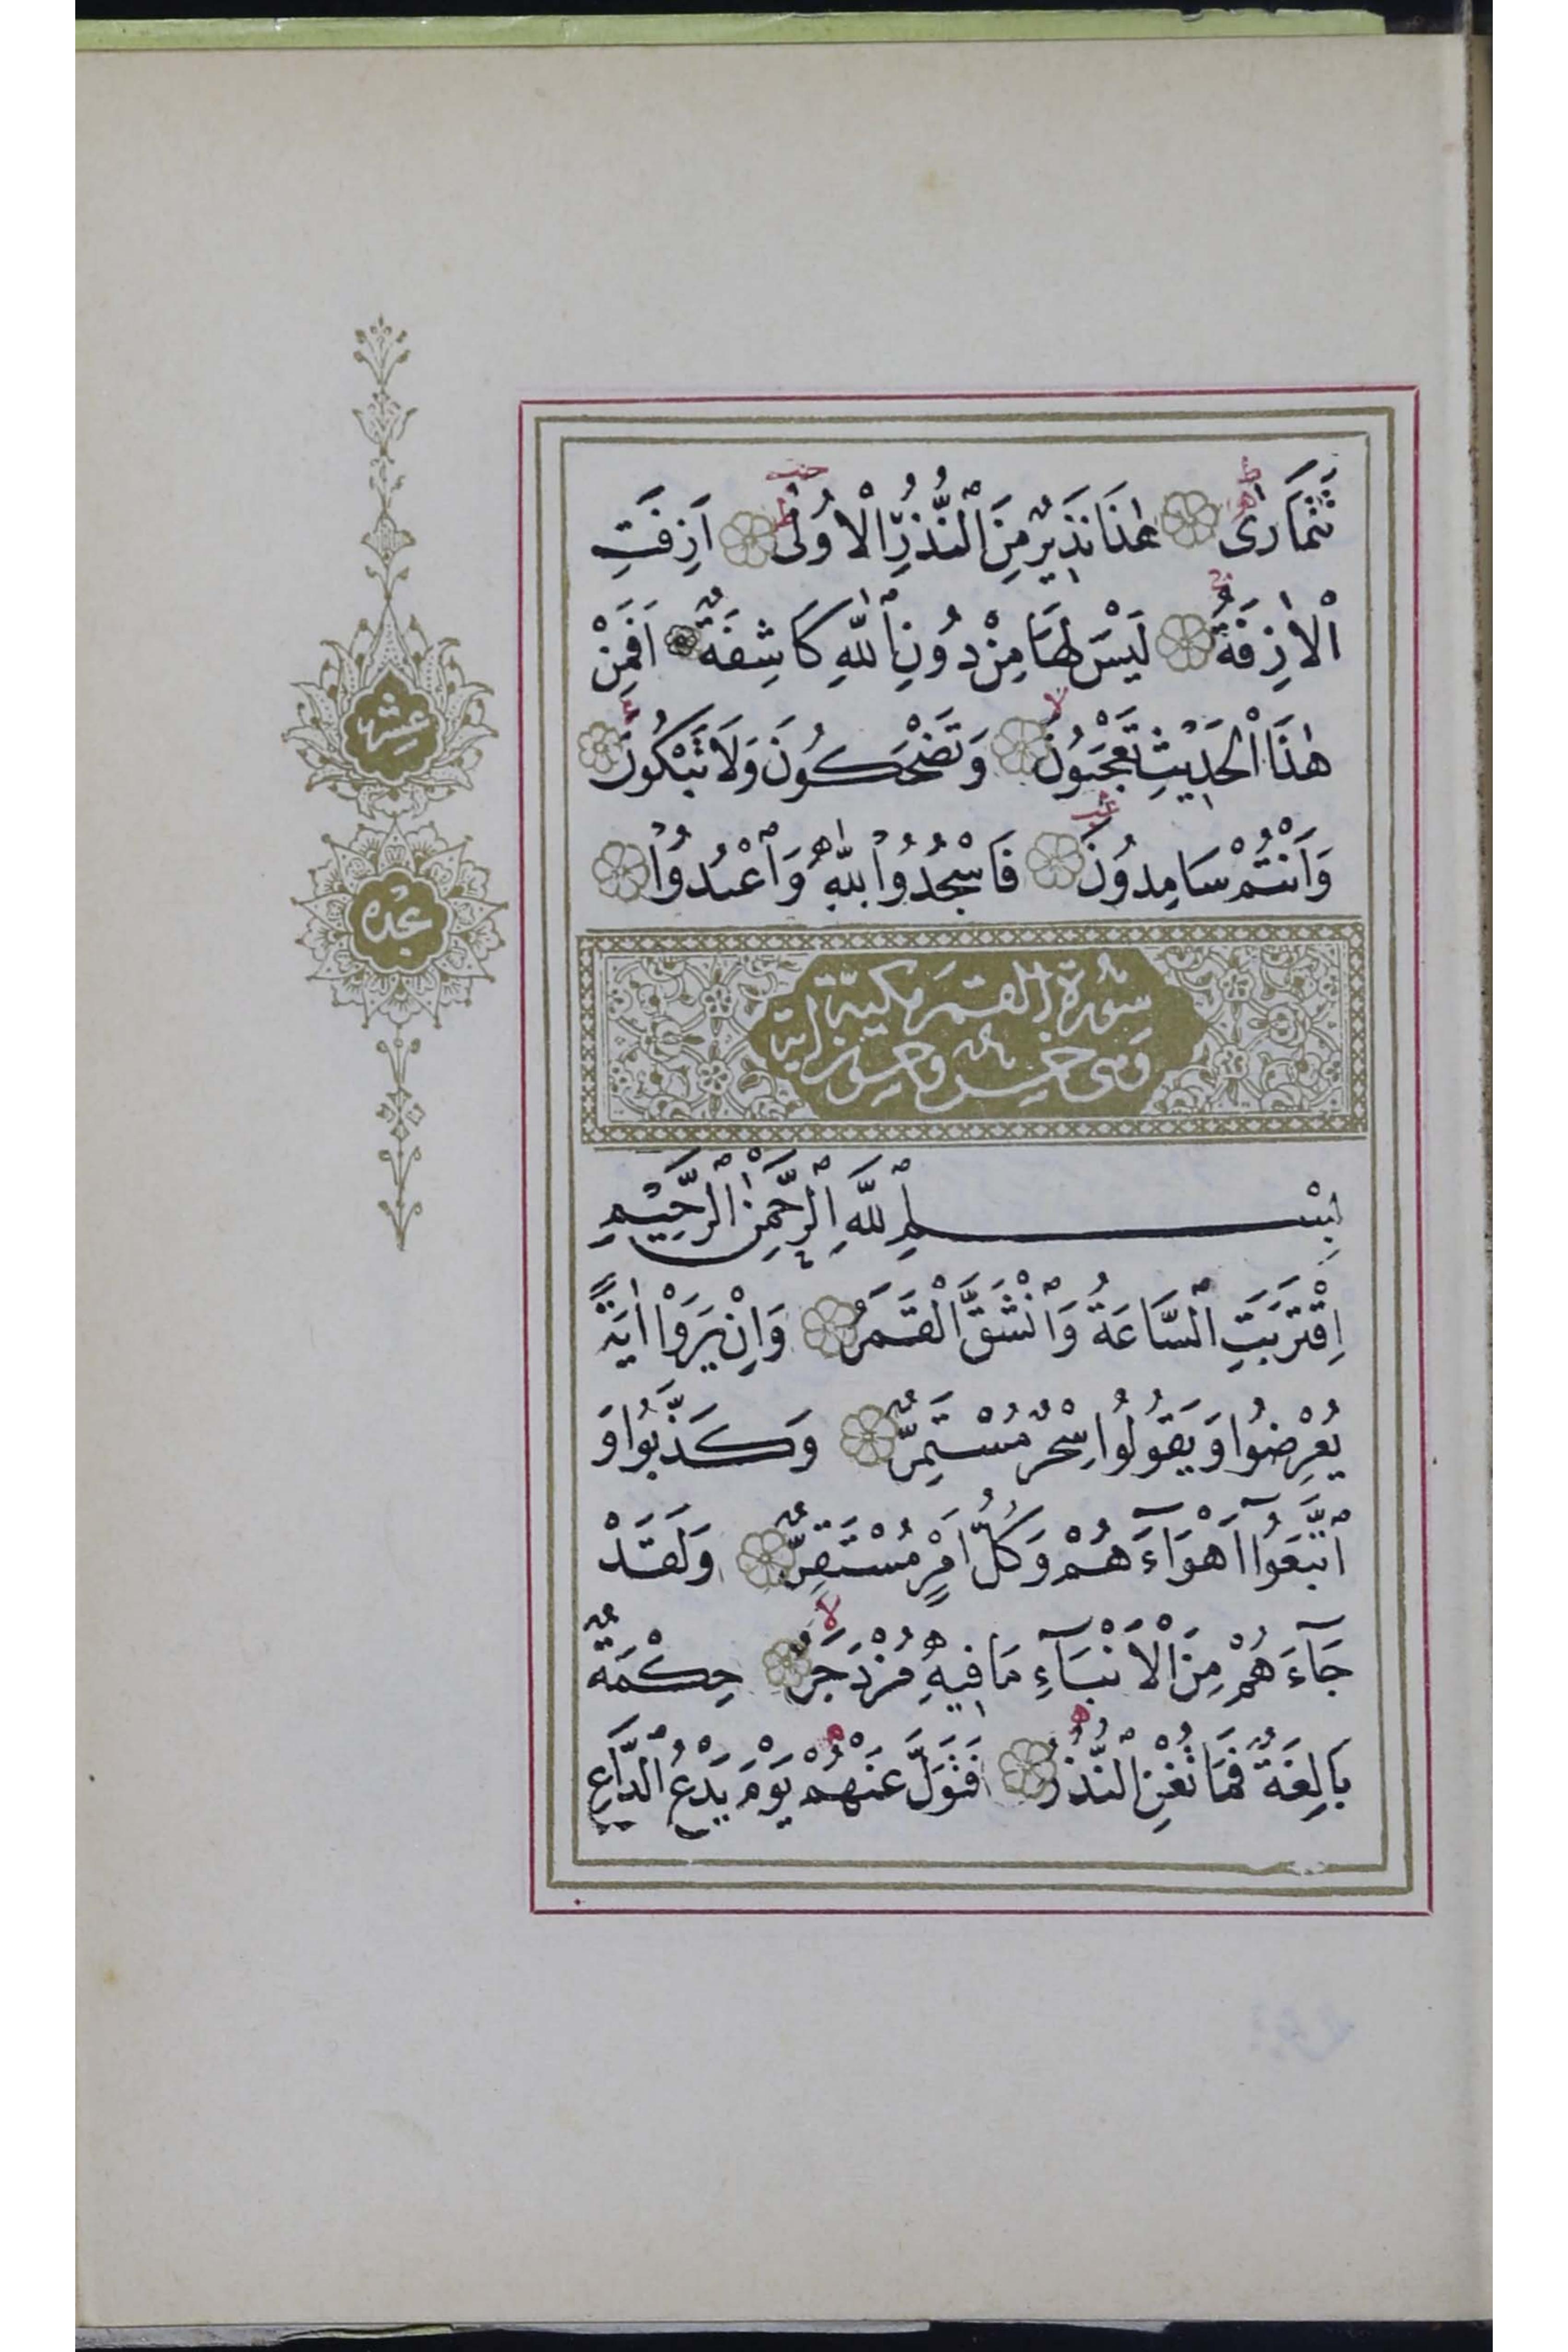 تَتَمَارٰى هٰذَا نَذِيرٌ مِنَ النُّذُرِ الْاُولٰى اَزِفَتِ
الْاٰزِفَةُ لَيْسَ لَهَا مِنْ دُونِ اللّٰهِ كَاشِفَةٌ اَفَمِنْ
هٰذَا الْحَدِيثِ تَعْجَبُونَ وَتَضْحَكُونَ وَلَا تَبْكُونَ
وَاَنْتُمْ سَامِدُونَ فَاسْجُدُوا لِلّٰهِ وَاعْبُدُوا
عشر
سجده
سُورَةُ القمر مكيّة
وهى خمس وخمسون اية
بِسْمِ اللّٰهِ الرَّحْمٰنِ الرَّحِيمِ
اِقْتَرَبَتِ السَّاعَةُ وَانْشَقَّ الْقَمَرُ وَاِنْ يَرَوْا اٰيَةً
يُعْرِضُوا وَيَقُولُوا سِحْرٌ مُسْتَمِرٌّ وَكَذَّبُوا وَ
اتَّبَعُوا اَهْوَآءَهُمْ وَكُلُّ اَمْرٍ مُسْتَقِرٌّ وَلَقَدْ
جَآءَهُمْ مِنَ الْاَنْبَآءِ مَا فِيهِ مُزْدَجَرٌ حِكْمَةٌ
بَالِغَةٌ فَمَا تُغْنِ النُّذُرُ فَتَوَلَّ عَنْهُمْ يَوْمَ يَدْعُ الدَّاعِ